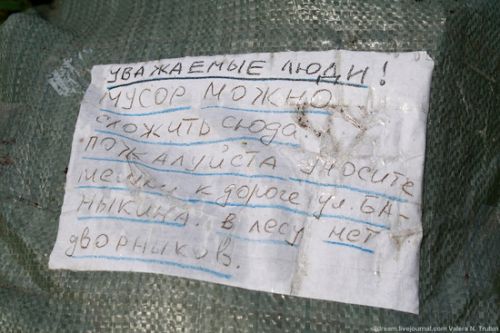 УВАЖАЕМЫЕ ЛЮДИ!
МУСОР МОЖНО
СЛОЖИТЬ СЮДА.
ПОЖАЛУЙСТА УНОСИТЕ
мешки к дороге ул. БА-
НЫКИНА. В лесу нет
дворников.
dream.livejournal.com Valera N. Trubin